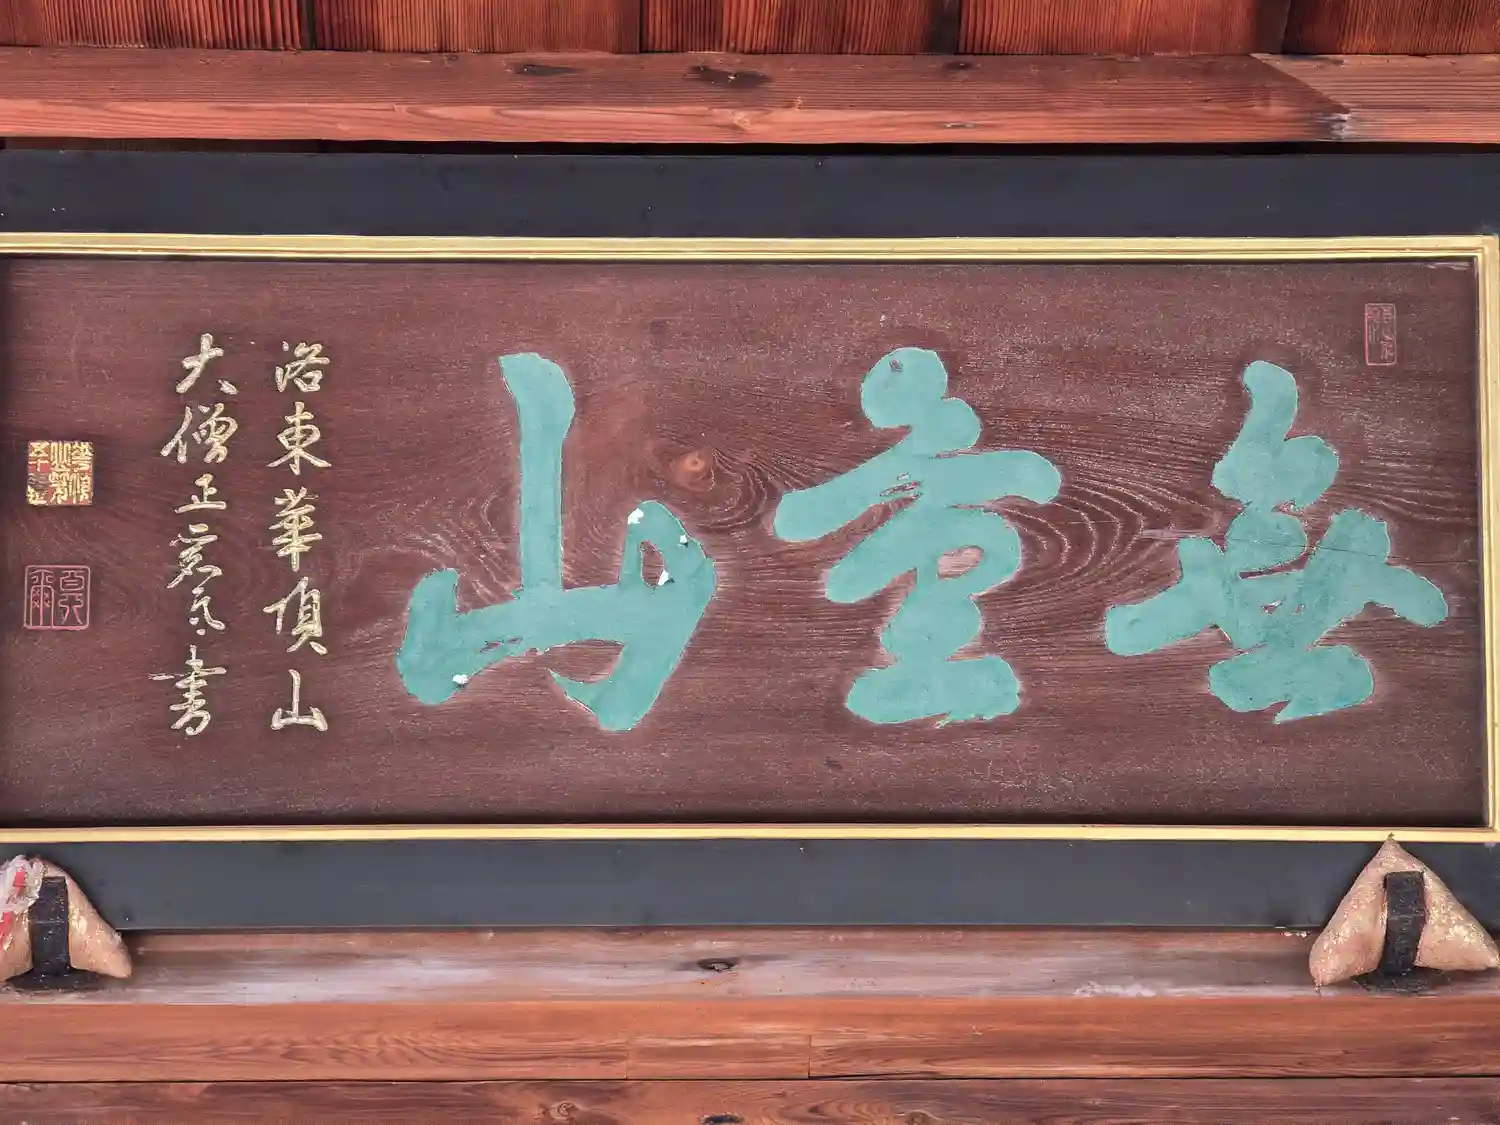 無量山
洛東華頂山
大僧正書